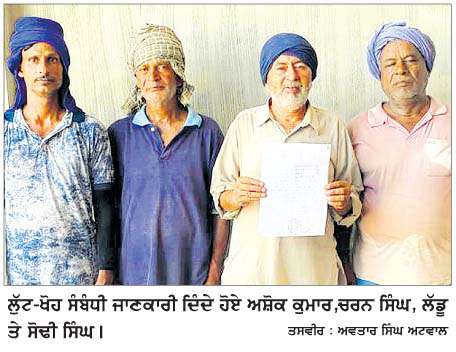 ਲੁੱਟ-ਖੋਹ ਸੰਬੰਧੀ ਜਾਣਕਾਰੀ ਦਿੰਦੇ ਹੋਏ ਅਸ਼ੋਕ ਕੁਮਾਰ,ਚਰਨ ਸਿੰਘ, ਲੱਡੂ
ਤੇ ਸੋਢੀ ਸਿੰਘ। ਤਸਵੀਰ : ਅਵਤਾਰ ਸਿੰਘ ਅਟਵਾਲ